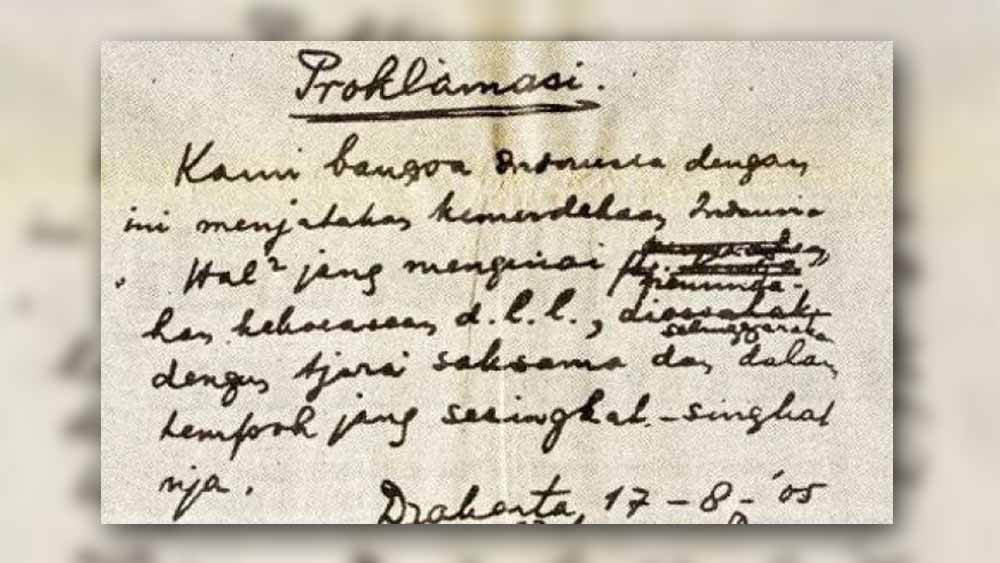 Proklamasi.
Kami bangsa Indonesia dengan
ini menjatakan kemerdekaan Indonesia
Hal² jang mengenai
peminda-
han kekoeasaan d.l.l., dioesahak-
selenggaraka
dengan tjara saksama dan dalam
tempoh jang sesingkat-singkat
nja.
Djakarta, 17-8-'05